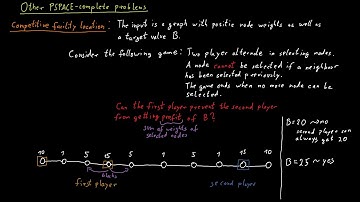 Other PSPACE-complete problems
Competitive facility location: The input is a graph with positive node weights as well as
a target value B.
Consider the following game: Two player alternate in selecting nodes.
A node cannot be selected if a neighbor
has been selected previously.
The game ends when no more node can be
selected.
Can the first player prevent the second player
from getting profit of B?
sum of weights of
selected nodes
B=20 → no
second player can
always get 20
B=25 → yes
10 1 5 15 5 1 5 1 15 10
blocks
first player
second player